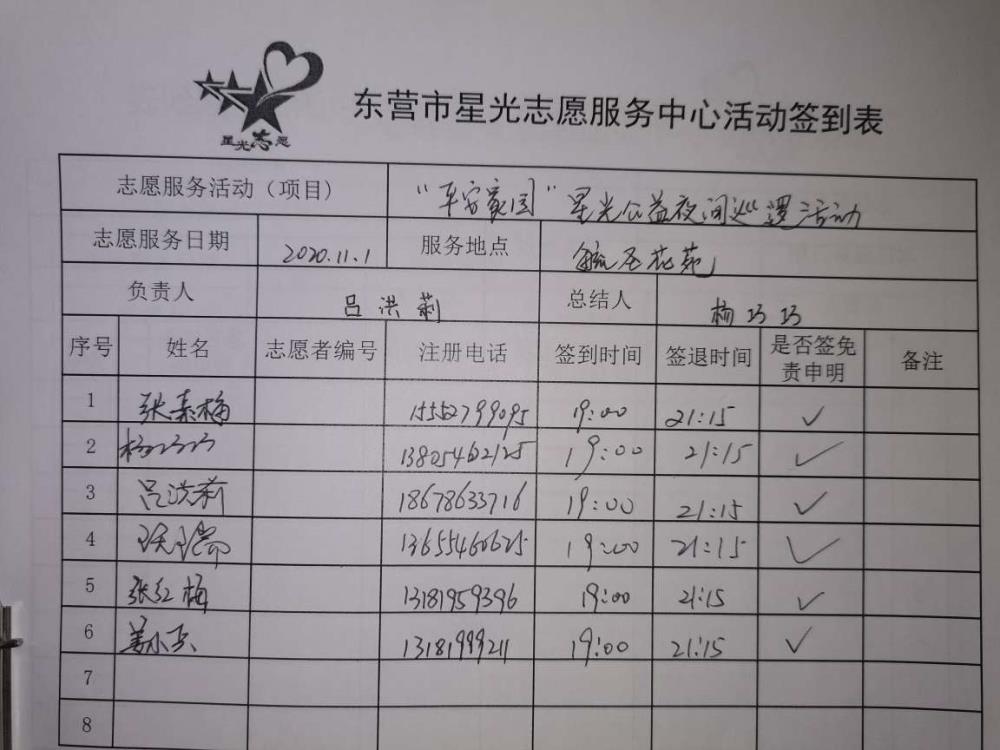 星光志愿
东营市星光志愿服务中心活动签到表
志愿服务活动（项目） “平安家园”星光公益夜间巡逻活动
志愿服务日期 2020.11.1 服务地点 花苑
负责人 吕洪莉 总结人 杨巧巧
序号 姓名 志愿者编号 注册电话 签到时间 签退时间 是否签免责申明 备注
1 张素梅 15552799095 19:00 21:15 ✓
2 杨巧巧 13805462125 19:00 21:15 ✓
3 吕洪莉 18678633716 19:00 21:15 ✓
4 13655460625 19:00 21:15 ✓
5 张红梅 13181959396 19:00 21:15 ✓
6 13181999211 19:00 21:15 ✓
7
8